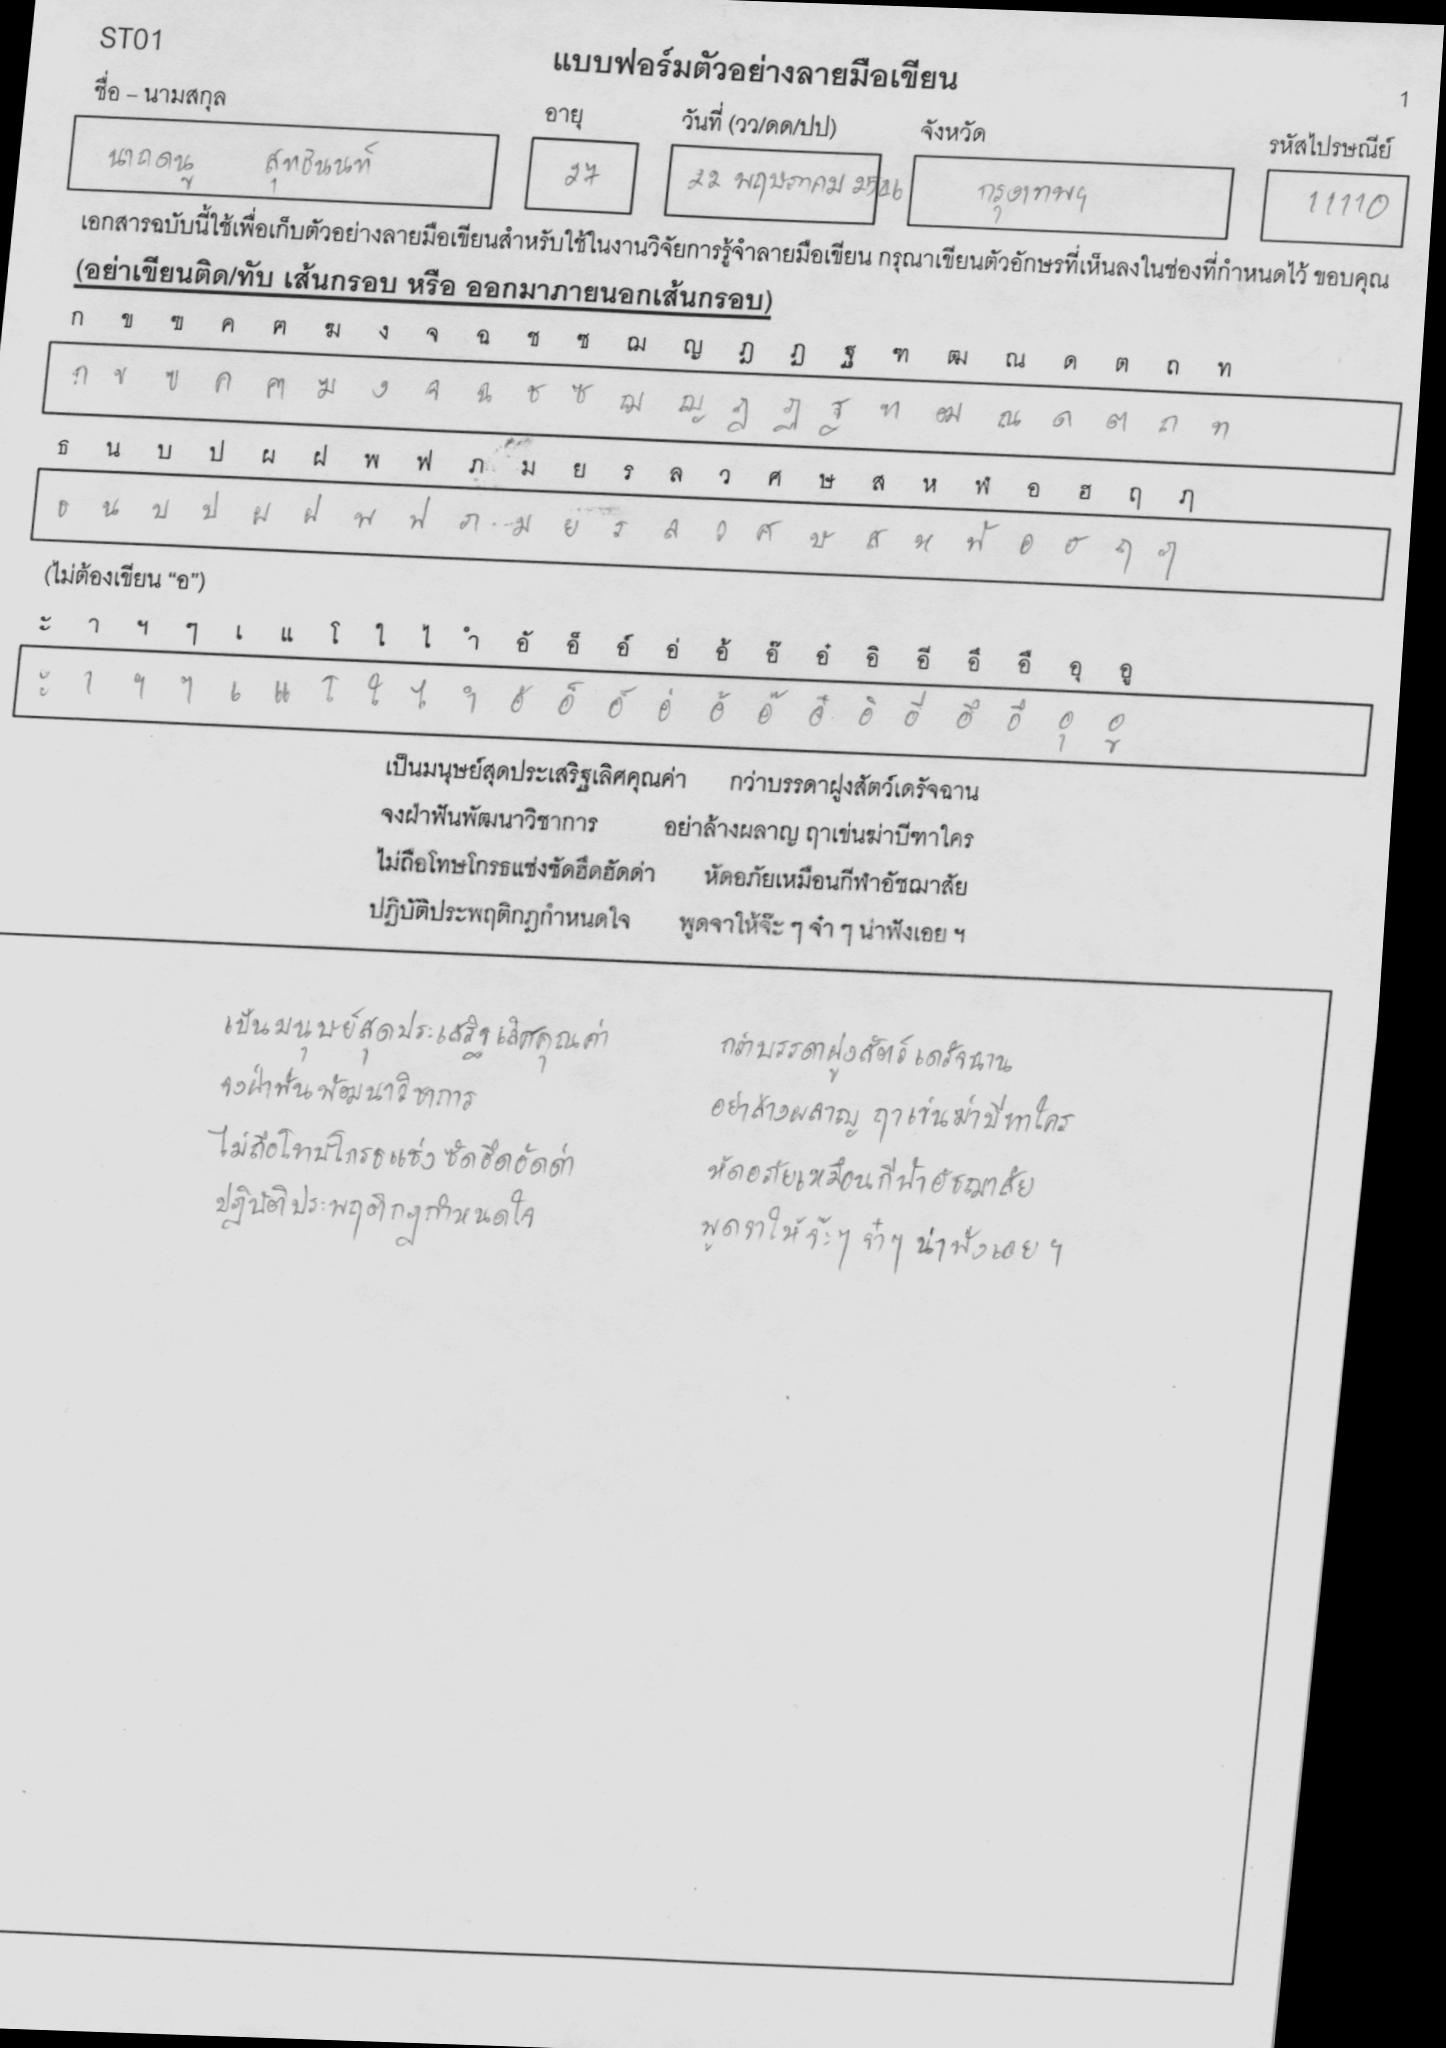 ST01
แบบฟอร์มตัวอย่างลายมือเขียน
1
ชื่อ – นามสกุล อายุ วันที่ (วว/ดด/ปป) จังหวัด รหัสไปรษณีย์
สุทธินนท์ 27 22 พฤษภาคม กรุงเทพฯ 11110
เอกสารฉบับนี้ใช้เพื่อเก็บตัวอย่างลายมือเขียนสำหรับใช้ในงานวิจัยการรู้จำลายมือเขียน กรุณาเขียนตัวอักษรที่เห็นลงในช่องที่กำหนดไว้ ขอบคุณ
(อย่าเขียนติด/ทับ เส้นกรอบ หรือ ออกมาภายนอกเส้นกรอบ)
ก ข ฃ ค ฅ ฆ ง จ ฉ ช ซ ฌ ญ ฎ ฏ ฐ ฑ ฒ ณ ด ต ถ ท
ก ข ฃ ค ฅ ฆ ง จ ฉ ช ซ ฌ ญ ฎ ฏ ฐ ฑ ฒ ณ ด ต ถ ท
ธ น บ ป ผ ฝ พ ฟ ภ ม ย ร ล ว ศ ษ ส ห ฬ อ ฮ ฤ ฦ
ธ น บ ป ผ ฝ พ ฟ ภ ม ย ร ล ว ศ ษ ส ห ฬ อ ฮ ฤ ฦ
(ไม่ต้องเขียน “อ”)
ะ า ฯ ๆ เ แ โ ใ ไ ำ อั อ็ อ์ อ่ อ้ อ๊ อ๋ อิ อี อึ อื อุ อู
ะ า ฯ ๆ เ แ โ ใ ไ ำ อั อ็ อ์ อ่ อ้ อ๊ อ๋ อิ อี อึ อื อุ อู
เป็นมนุษย์สุดประเสริฐเลิศคุณค่า กว่าบรรดาฝูงสัตว์เดรัจฉาน
จงฝ่าฟันพัฒนาวิชาการ อย่าล้างผลาญ ฤาเข่นฆ่าบีฑาใคร
ไม่ถือโทษโกรธแช่งซัดฮึดฮัดด่า หัดอภัยเหมือนกีฬาอัชฌาสัย
ปฏิบัติประพฤติกฎกำหนดใจ พูดจาให้จ๊ะ ๆ จ๋า ๆ น่าฟังเอย ฯ
เป็นมนุษย์สุดประเสริฐเลิศคุณค่า กว่าบรรดาฝูงสัตว์เดรัจฉาน
จงฝ่าฟันพัฒนาวิชาการ อย่าล้างผลาญ ฤาเข่นฆ่าบีฑาใคร
ไม่ถือโทษโกรธแช่ง ซัดฮึดฮัดด่า หัดอภัยเหมือนกีฬาอัชฌาสัย
ปฏิบัติประพฤติกฎกำหนดใจ พูดจาให้จ๊ะๆ จ๋าๆ น่าฟังเอย ฯ